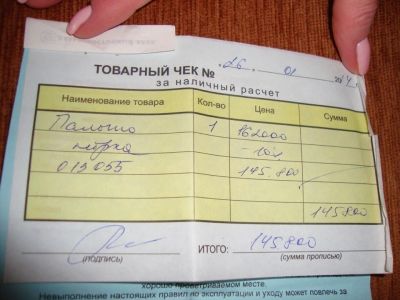 ТОВАРНЫЙ ЧЕК № 26. 01 20
за наличный расчет
Наименование товара Кол-во Цена Сумма
Пальто 1 162000
норка -10%
013055 145.800
145800
(подпись) ИТОГО: 145800
(сумма прописью)
хорошо проветриваемом месте.
Невыполнение настоящих правил по эксплуатации и уходу может повлечь за